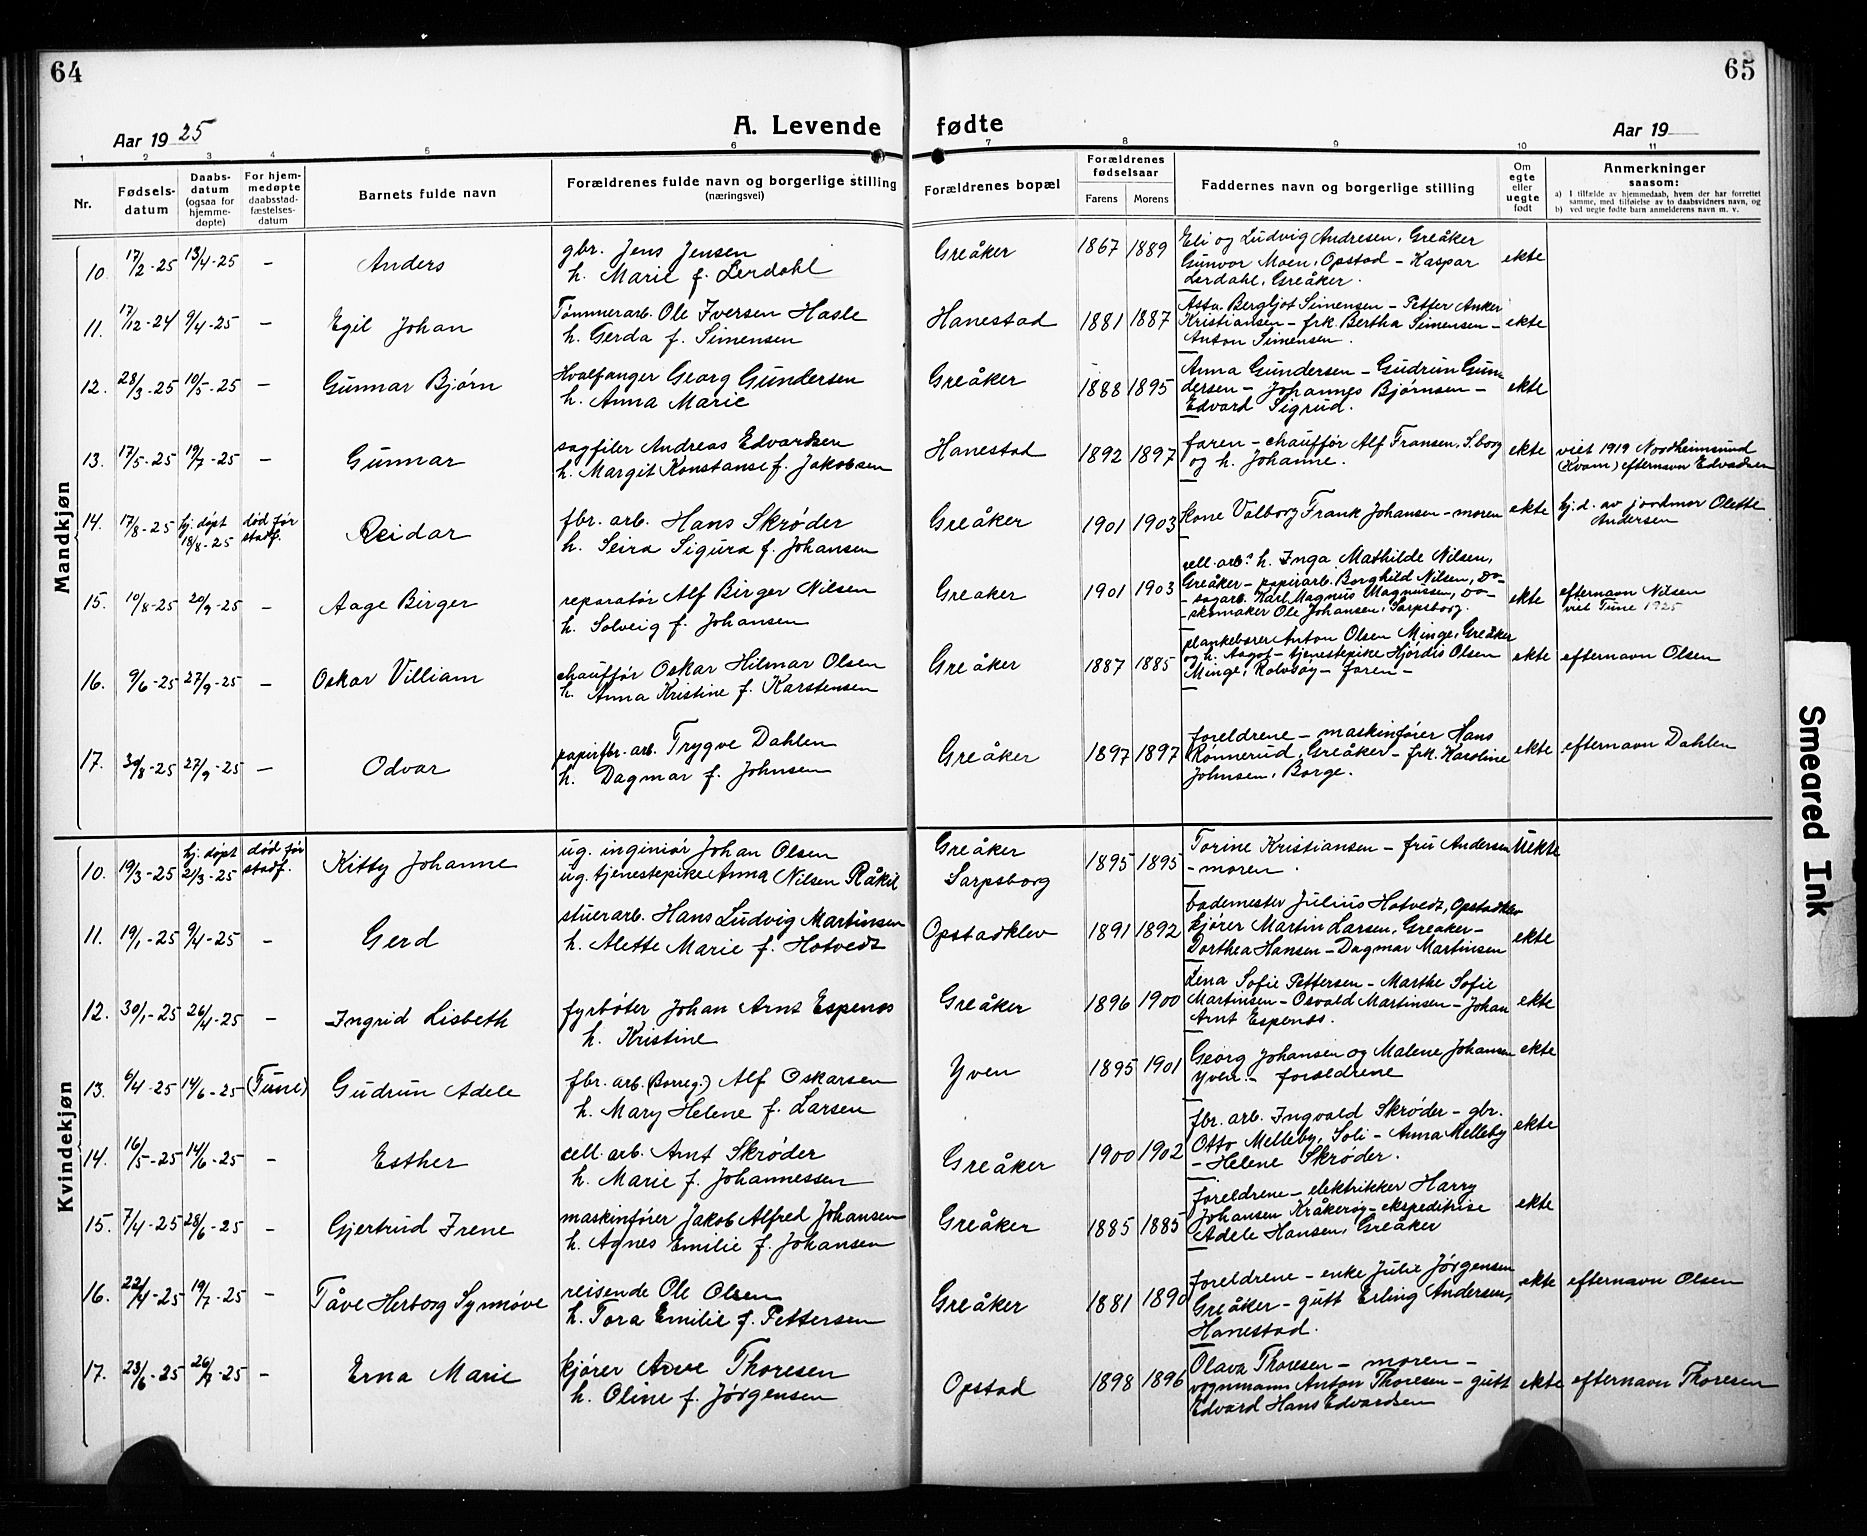 64
65
Aar 1925
A. Levende fødte
Aar 19
1 2 3 4 5 6 7 8 9 10 11
Nr.
Fødsels-
datum
Daabs-
datum
(ogsaa for
hjemme-
døpte)
For hjem-
medøpte
daabsstad-
fæstelses-
datum
Barnets fulde navn
Forældrenes fulde navn og borgerlige stilling
(næringsvei)
Forældrenes bopæl
Forældrenes
fødselsaar
Farens Morens
Faddernes navn og borgerlige stilling
Om
egte
eller
uegte
født
Anmerkninger
saasom:
a) I tilfælde av hjemmedaab, hvem der har forrettet
samme, med tilføielse av to daabsvidners navn, og
b) ved uegte fødte barn anmelderens navn m. v.
Mandkjøn
10. 17/2-25 13/4-25 - Anders
gbr. Jens Jensen
h. Marie f. Lerdahl
Greåker 1867 1889
Eli og Ludvig Andresen, Greåker
Gunvor Moen, Opstad - Kaspar
Lerdahl, Greåker.
ekte
11. 17/12-24 9/4-25 - Egil Johan
Tømmerarb. Ole Iversen Hasle
h. Gerda f. Simensen
Hanestad 1881 1887
Asta Bergljot Simensen - Petter Anker
Kristiansen - frk. Bertha Simensen -
Anton Simensen.
ekte
12. 28/3-25 10/5-25 - Gunnar Bjørn
Hvalfanger Georg Gundersen
h. Anna Marie
Greåker 1888 1895
Anna Gundersen - Gudrun Gun
dersen - Johannes Bjørnsen -
Edvard Sigrud.
ekte
13. 17/5-25 19/7-25 - Gunnar
sagfiler Andreas Edvardsen
h. Margit Konstanse f. Jakobsen
Hanestad 1892 1897
faren - chauffør Alf Fransen, S.borg
og h. Johanne.
ekte
viet 1919 Nordheimsund
(Kvam) efternavn Edvardsen
14. 17/8-25 hj. døpt
18/8-25
død før
stadf.
Reidar
fbr. arb. Hans Skrøder
h. Seira Sigura f. Johansen
Greåker 1901 1903
kone Valborg Frank Johansen - moren
ekte
hj.d. av jordmor Olette
Andersen
15. 10/8-25 20/9-25 - Aage Birger
reparatør Alf Birger Nilsen
h. Solveig f. Johansen
Greaker 1901 1903
cell. arb.s h. Inga Mathilde Nilsen,
Greåker - papirarb. Borghild Nilsen, Do
- sagarb. Karl Magnus Magnussen, Do -
- skomaker Ole Johansen, Sarpsborg.
ekte
efternavn Nilsen
viet Tune 1925
16. 9/6-25 27/9-25 - Oskar Villiam
chauffør Oskar Hilmar Olsen
h. Anna Kristine f. Karstensen
Greåker 1887 1885
plankebærer Anton Olsen Minge, Greåker
og h. Aagot - tjenestepike Hjørdis Olsen
Minge, Rolvsøy - faren -
ekte
efternavn Olsen
17. 30/8-25 27/9-25 - Odvar
papirfbr. arb. Trygve Dahlen
h. Dagmar f. Johnsen
Greåker 1897 1897
foreldrene - maskinfører Hans
Rønnerud, Greåker - frk. Karoline
Johnsen, Borge.
ekte
efternavn Dahlen
Kvindekjøn
10. 19/3-25 hj. døpt
21/3-25
død før
stadf.
Kitty Johanne
ug. inginiør Johan Olsen
ug. tjenestepike Anna Nilsen Råkil
Greåker
Sarpsborg
1895 1895
Torine Kristiansen - fru Andersen
- moren.
Uekte
11. 19/1-25 9/4-25 - Gerd
stuerarb. Hans Ludvig Martinsen
h. Alette Marie f. Hotvedt
Opstadklev 1891 1892
bademester Julius Hotvedt, Opstadklev
kjører Martin Larsen, Greaker -
Dorthea Hansen - Dagmar Martinsen
ekte
12. 30/1-25 26/4-25 - Ingrid Lisbeth
fyrbøter Johan Arnt Espenes
h. Kristine
Greåker 1896 1900
Lena Sofie Pettersen - Marthe Sofie
Martinsen - Osvald Martinsen - Johan
Arnt Espenes.
ekte
13. 6/4-25 14/6-25 (Tune) Gudrun Adele
fbr. arb. (Borreg.) Alf Oskarsen
h. Mary Helene f. Larsen
Yven 1895 1901
Georg Johansen og Malene Johansen
Yven. - foreldrene
ekte
14. 16/5-25 14/6-25 - Esther
cell. arb. Arnt Skrøder
h. Marie f. Johannessen
Greåker 1900 1902
fbr. arb. Ingvald Skrøder - gbr.
Otto Melleby, Soli - Anna Melleby
- Helene Skrøder.
ekte
15. 7/4-25 28/6-25 - Gjertrud Irene
maskinfører Jakob Alfred Johansen
h. Agnes Emilie f. Johansen
Greåker 1885 1885
foreldrene - elektrikker Harry
Johansen Kråkerøy - ekspeditrise
Adele Hansen, Greåker
ekte
16. 22/4-25 19/7-25 - Tåve Herborg Synnøve
reisende Ole Olsen
h. Tora Emilie f. Pettersen
Greåker 1881 1890
foreldrene - enke Julie Jørgensen
Greåker - gutt Erling Andersen,
Hanestad.
ekte
efternavn Olsen
17. 28/6-25 26/7-25 - Erna Marie
kjører Arve Thoresen
h. Oline f. Jørgensen
Opstad 1898 1896
Olava Thoresen - moren -
vognmann Anton Thoresen - gutt
Edvard Hans Edvardsen
ekte
efternavn Thoresen
Smeared Ink